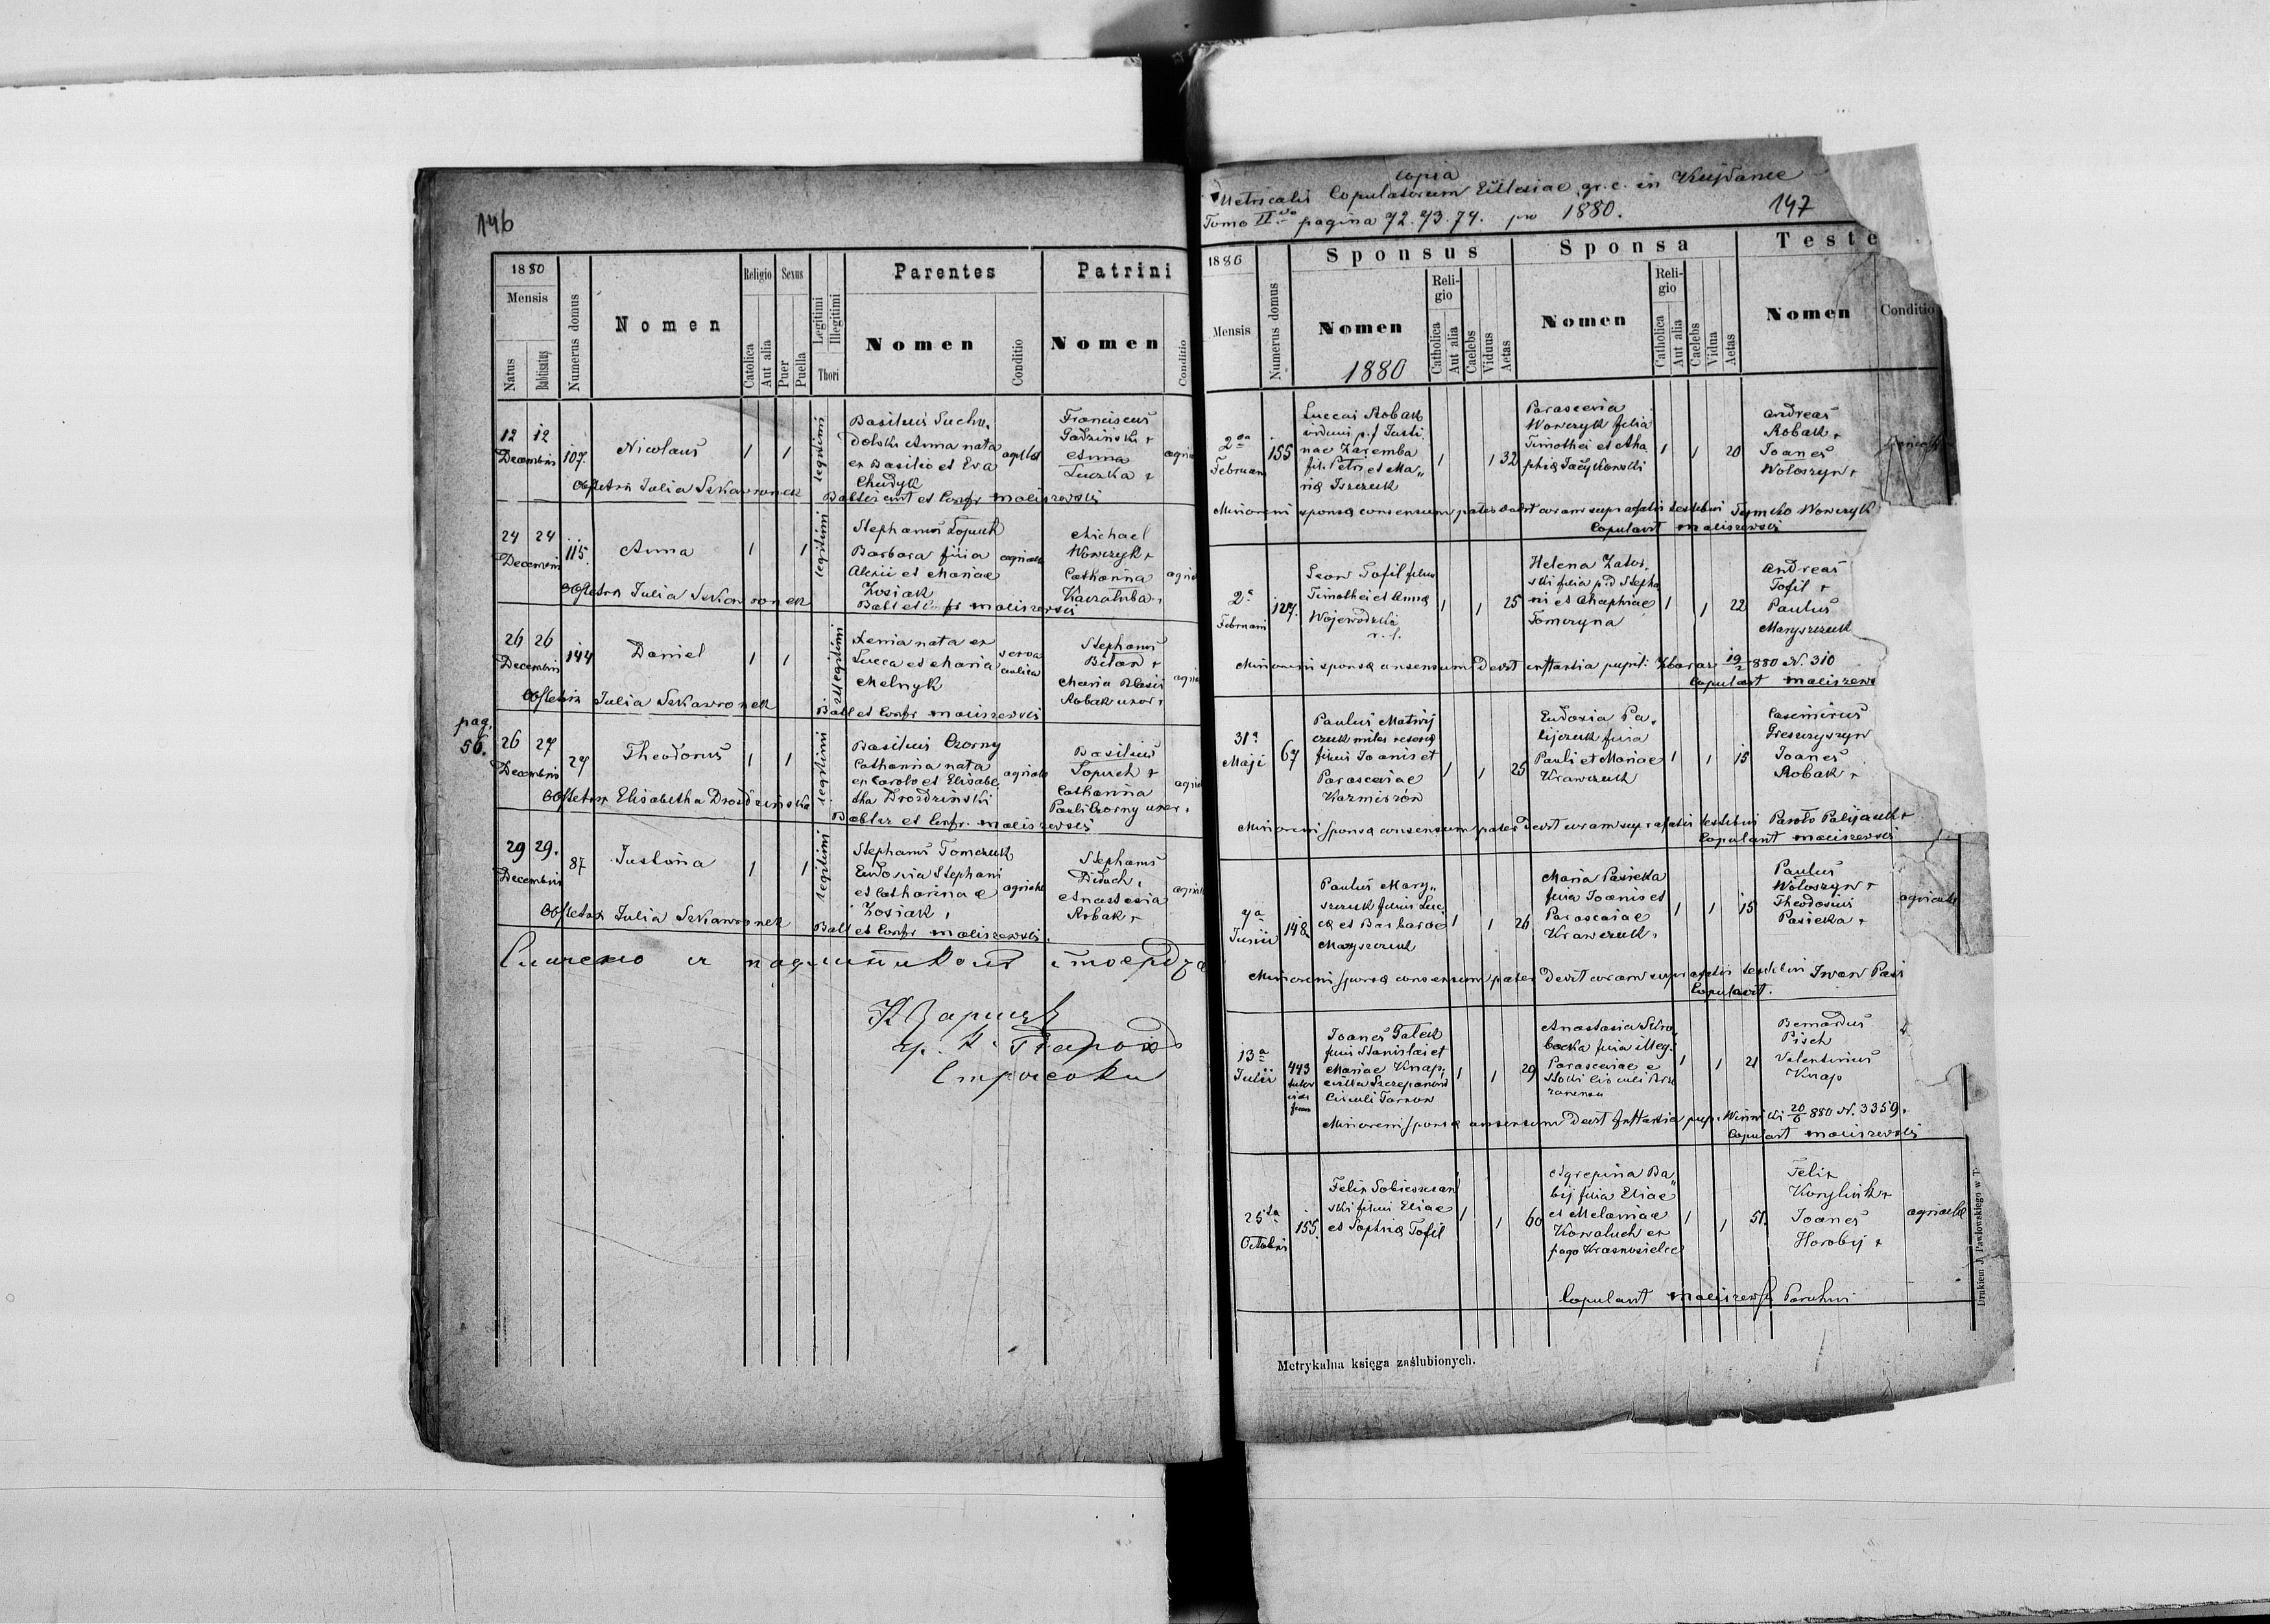 146
1880
Mensis
Natus
Babtisatus
Numerus domus
Nomen
Religio
Catolica
Aut alia
Sexus
Puer
Puella
Legitimi
Illegitimi
Thori
Parentes
Nomen
Conditio
Patrini
Nomen
Conditio
12 12
Decembris
107.
Nicolaus
1 1
legitimi
Basilius Sucho-
dolski Anna nata
ex Basilio et Eva
Chudyk
Franciscus
Gadzinski +
Anna
Luczka +
Obstetrix Julia Szkawronek
Babtis avit et Confr Maliszewski
24 24
Decembris
115.
Anna
1 1
legitimi
Stephanus Łopuch
Barbara filia
Alexii et Mariae
Kosiak
Michael
Wowczyk +
Catharina
Obstetrix Julia Szkawronek
Babt et Confr Maliszewski
26 26
Decembris
144
Daniel
1 1
illegitimi
Xenia nata ex
Lucca et Maria
Melnyk
serva
aulica
Stephanus
Bilan +
Maria Blasii
Robak uxor +
Obstetrix Julia Szkawronek
Babt et Confr Maliszewski
pag.
56.
26 27
Decembris
27
Theodorus
1 1
legitimi
Basilius Czorny
Catharina nata
ex Carolo et Elisabe
tha Drozdzinski
Basilius
Łopuch +
Catharina
Pauli Czorny uxor +
Obstetrix Elisabetha Drozdzinska
Babtz et Confr. Maliszewski
29 29.
Decembris
87
Justina
1 1
legitimi
Stephanus Tomczuk
Eudoxia Stephani
et Catharinae
Kosiak +
Stephanus
Diduch +
Anastasia
Robak +
Obstetrix Julia Szkawronek
Babt et Confr Maliszewski
copia
Metricalis Copulatorum Ecclesiae gr. c. in Kujdance
Tomo II pagina 72. 73. 74. pro 1880.
147
1886
Mensis
Numerus domus
Sponsus
Nomen
1880
Religio
Catholica
Aut alia
Caelebs
Viduus
Aetas
Sponsa
Nomen
Religio
Catholica
Aut alia
Caelebs
Vidua
Aetas
Teste
Nomen
Conditio
2da
Februarii
155
Luccas Robak
viduus p. f Justi
nae Zaremba
fil. Petri et Ma-
riae
1 1 32
Parascevia
Wowczyk filia
Timothei et Aha
phiae
1 1 20
Andreas
Robak +
Joanes
Wołoszyn +
Minoreni sponsae consensum pater dedit coram supra fatis testibus Tymko Wowczyk
Copulavit Maliszewski
2a
Februarii
127.
Leon Tofil filius
Timothei et Annae
Wojewodzki
r. l.
1 1 25
Helena Zator-
ski filia p.d Stepha
ni et Ahaphiae
Tomczyna
1 1 22
Andreas
Tofil +
Paulus
Maryszczuk
Minoreni sponsae consensum dedit instantia pupil: Zbaraz 19/2 880 N. 310
Copulavit Maliszews
31a
Maji
67
Paulus Matwij
czuk miles reserve
filius Joanis et
Parasceviae
1 1 25
Eudoxia Pa-
lijczuk filia
Pauli et Mariae
Krawczuk
1 1 15
Casimirus
Joanes
Robak +
Minoreni sponsae consensum pater dedit coram supra fatis testibus Pawło Palijczuk +
Copulavit Maliszewski
7a
Junii
148
Paulus Mary-
szczuk filius Luc
ae et Barbarae
Maryszczuk
1 1 26
Maria Pasieka
filia Joanis et
Parasceviae
Krawczuk +
1 1 15
Paulus
Wołoszyn +
Theodosius
Pasieka +
Minoreni sponsae consensum pater dedit coram supra fatis testibus Iwan Pasi
Copulavit.
13a
Julii
443
Joanes Galek
filius Stanislai et
Mariae Knap
Circuli Tarnow
1 1 29
Anastasia
filia illeg.
Parasceviae
1 1 21
Bernardus
Pisch
Valentinus
Knap
Minoreni sponsae consensum dedit instantia pup. Winniki 20/6 880 N. 3359 +
Copulavit Maliszewski
25ta
Octobris
155.
Felix Sobieszczan
ski filius Eliae
et Sophiae Tofil
1 1 60
Agrepina Ba-
bij filia Eliae
et Melaniae
Kowaluch ex
pago Krasnosielce
1 1 51.
Felix
Joanes
Horobij +
Copulavit Maliszewski Parochus
Metrykalna księga zaślubionych.
Drukiem J. Pawłowskiego w T